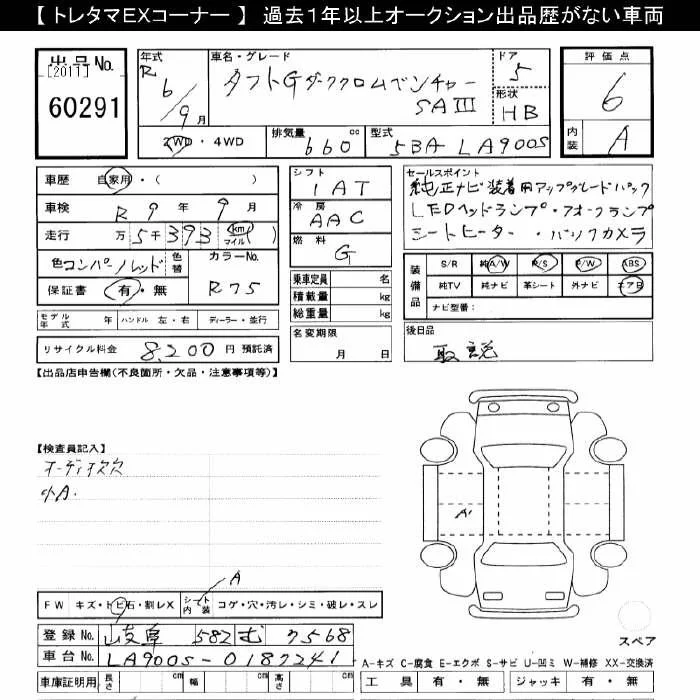 【 トレタマEXコーナー 】 過去1年以上オークション出品歴がない車両
出品No.
[2011]
60291
年式
R 6/9月
車名・グレード
タフトGダーククロムベンチャー
SAⅢ
ドア
5
形状
HB
評価点
6
内装
A
2WD ・ 4WD
排気量 660 cc
型式 5BA LA900S
車歴 自家用・( )
車検 R 9 年 9 月
走行 万 5千393 (km マイル)
色 コンパーノレッド 色替
カラーNo.
R75
保証書 有・無
シフト
1AT
冷房
AAC
燃料
G
乗車定員 名
積載量 kg
総重量 kg
セールスポイント
純正ナビ装着用アップグレードパック
LEDヘッドランプ・フォグランプ
シートヒーター・バックカメラ
装備品
S/R 純A/W P/S P/W ABS
純TV 純ナビ 革シート 外ナビ エアB
ナビ型番:
モデル年式 年 ハンドル 左・右 ディーラー・並行
リサイクル料金 8,200 円 預託済
名変期限
月 日
後日品
取説
【出品店申告欄(不良箇所・欠品・注意事項等)】
【検査員記入】
オーディオ欠
小A.
A'
A
FW キズ・トビ石・割レX シート内装 コゲ・穴・汚レ・シミ・破レ・スレ
スペア
登録No. 岐阜 582 む 7568
車台No. LA900S-0187241
A-キズ C-腐食 E-エクボ S-サビ U-凹ミ W-補修 XX-交換済
車庫証明用 長さ cm 幅 cm 高さ cm
工具 有・無 ジャッキ 有・無